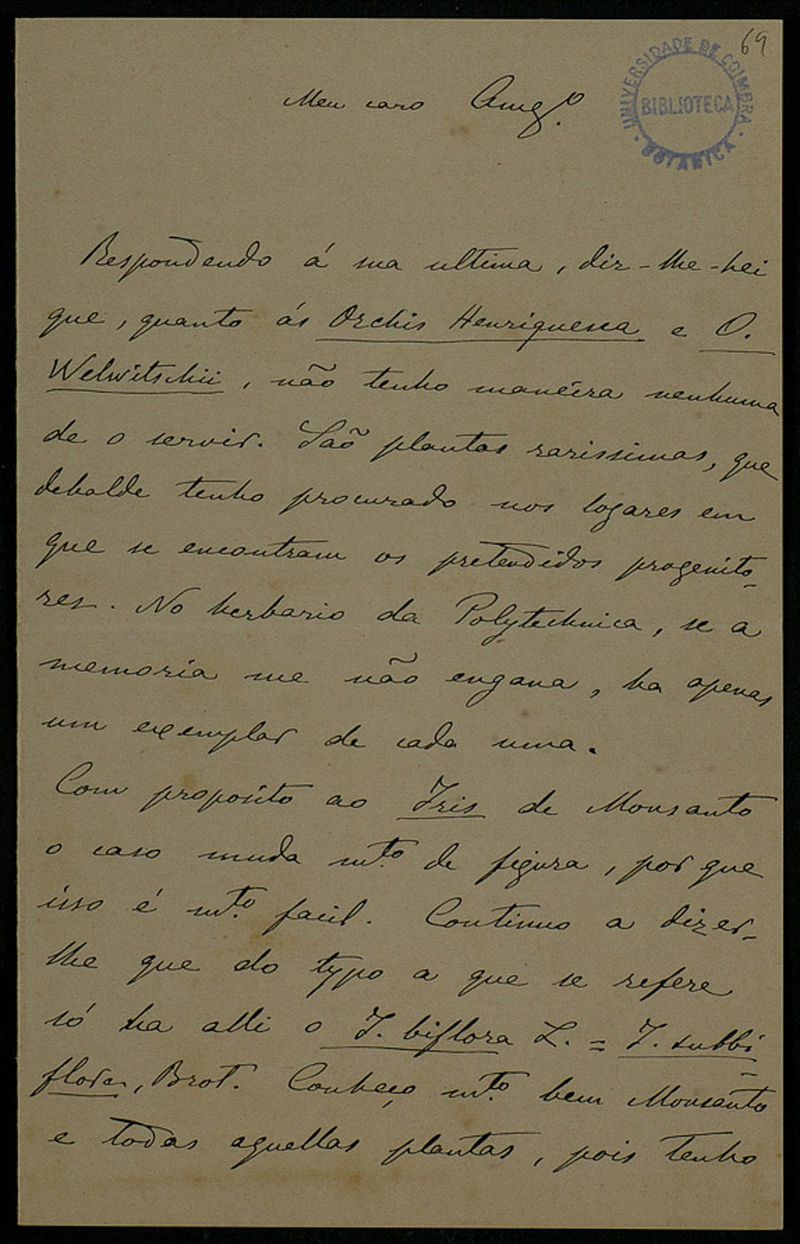 69
UNIVERSIDADE DE COIMBRA
BIBLIOTECA
BOTANICA
Meu caro Amg.º
Respondendo á sua ultima, dir-lhe-hei
que, quanto ás Orchis Henriquesea e O.
Welwitschii, não tenho maneira nenhuma
de o servir. São plantas rarissimas, que
debalde tenho procurado nos logares em
que se encontram os pretendidos progenito-
res. No herbario da Polytechnica, se a
memoria me não engana, ha apenas
um exemplar de cada uma.
Com proposito ao Iris de Monsanto
o caso muda mt.º de figura, por que
isso é mt.º facil. Continuo a dizer-
lhe que do typo a que se refere
só ha alli o I. biflora L. = I. subbi-
flora, Brot. Conheço mt.º bem Monsanto
e todas aquellas plantas, pois tenho